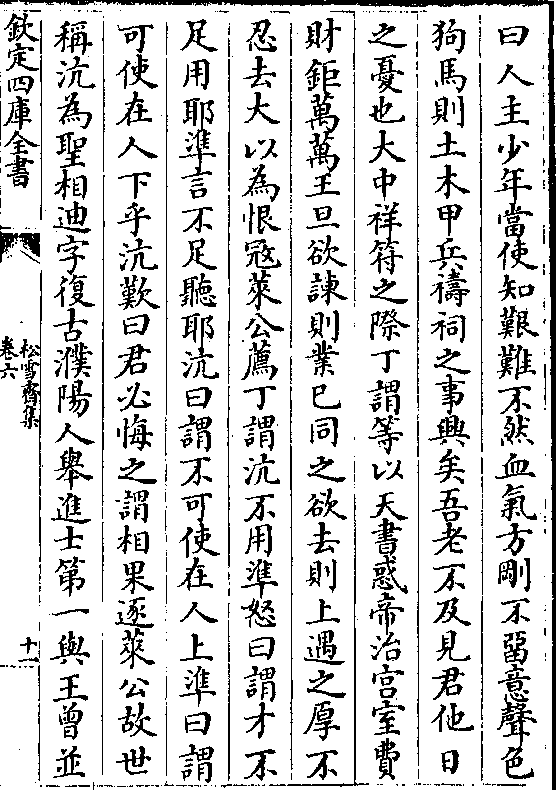 曰人主少年當使知艱難不然血氣方剛不留意聲色
狥馬則土木甲兵禱祠之事興矣吾老不及見君他日
之憂也大中祥符之際丁謂等以天書惑帝治宫室費
財鉅萬萬王旦欲諫則業已同之欲去則上遇之厚不
忍去大以為恨冦萊公薦丁謂沆不用準怒曰謂才不
足用耶準言不足聽耶沆曰謂不可使在人上準曰謂
可使在人下乎沆歎曰君必悔之謂相果逐萊公故世
稱沆為聖相迪字復古濮陽人舉進士第一與王曾並
欽定四庫全書
松雪齋集
卷六
十一